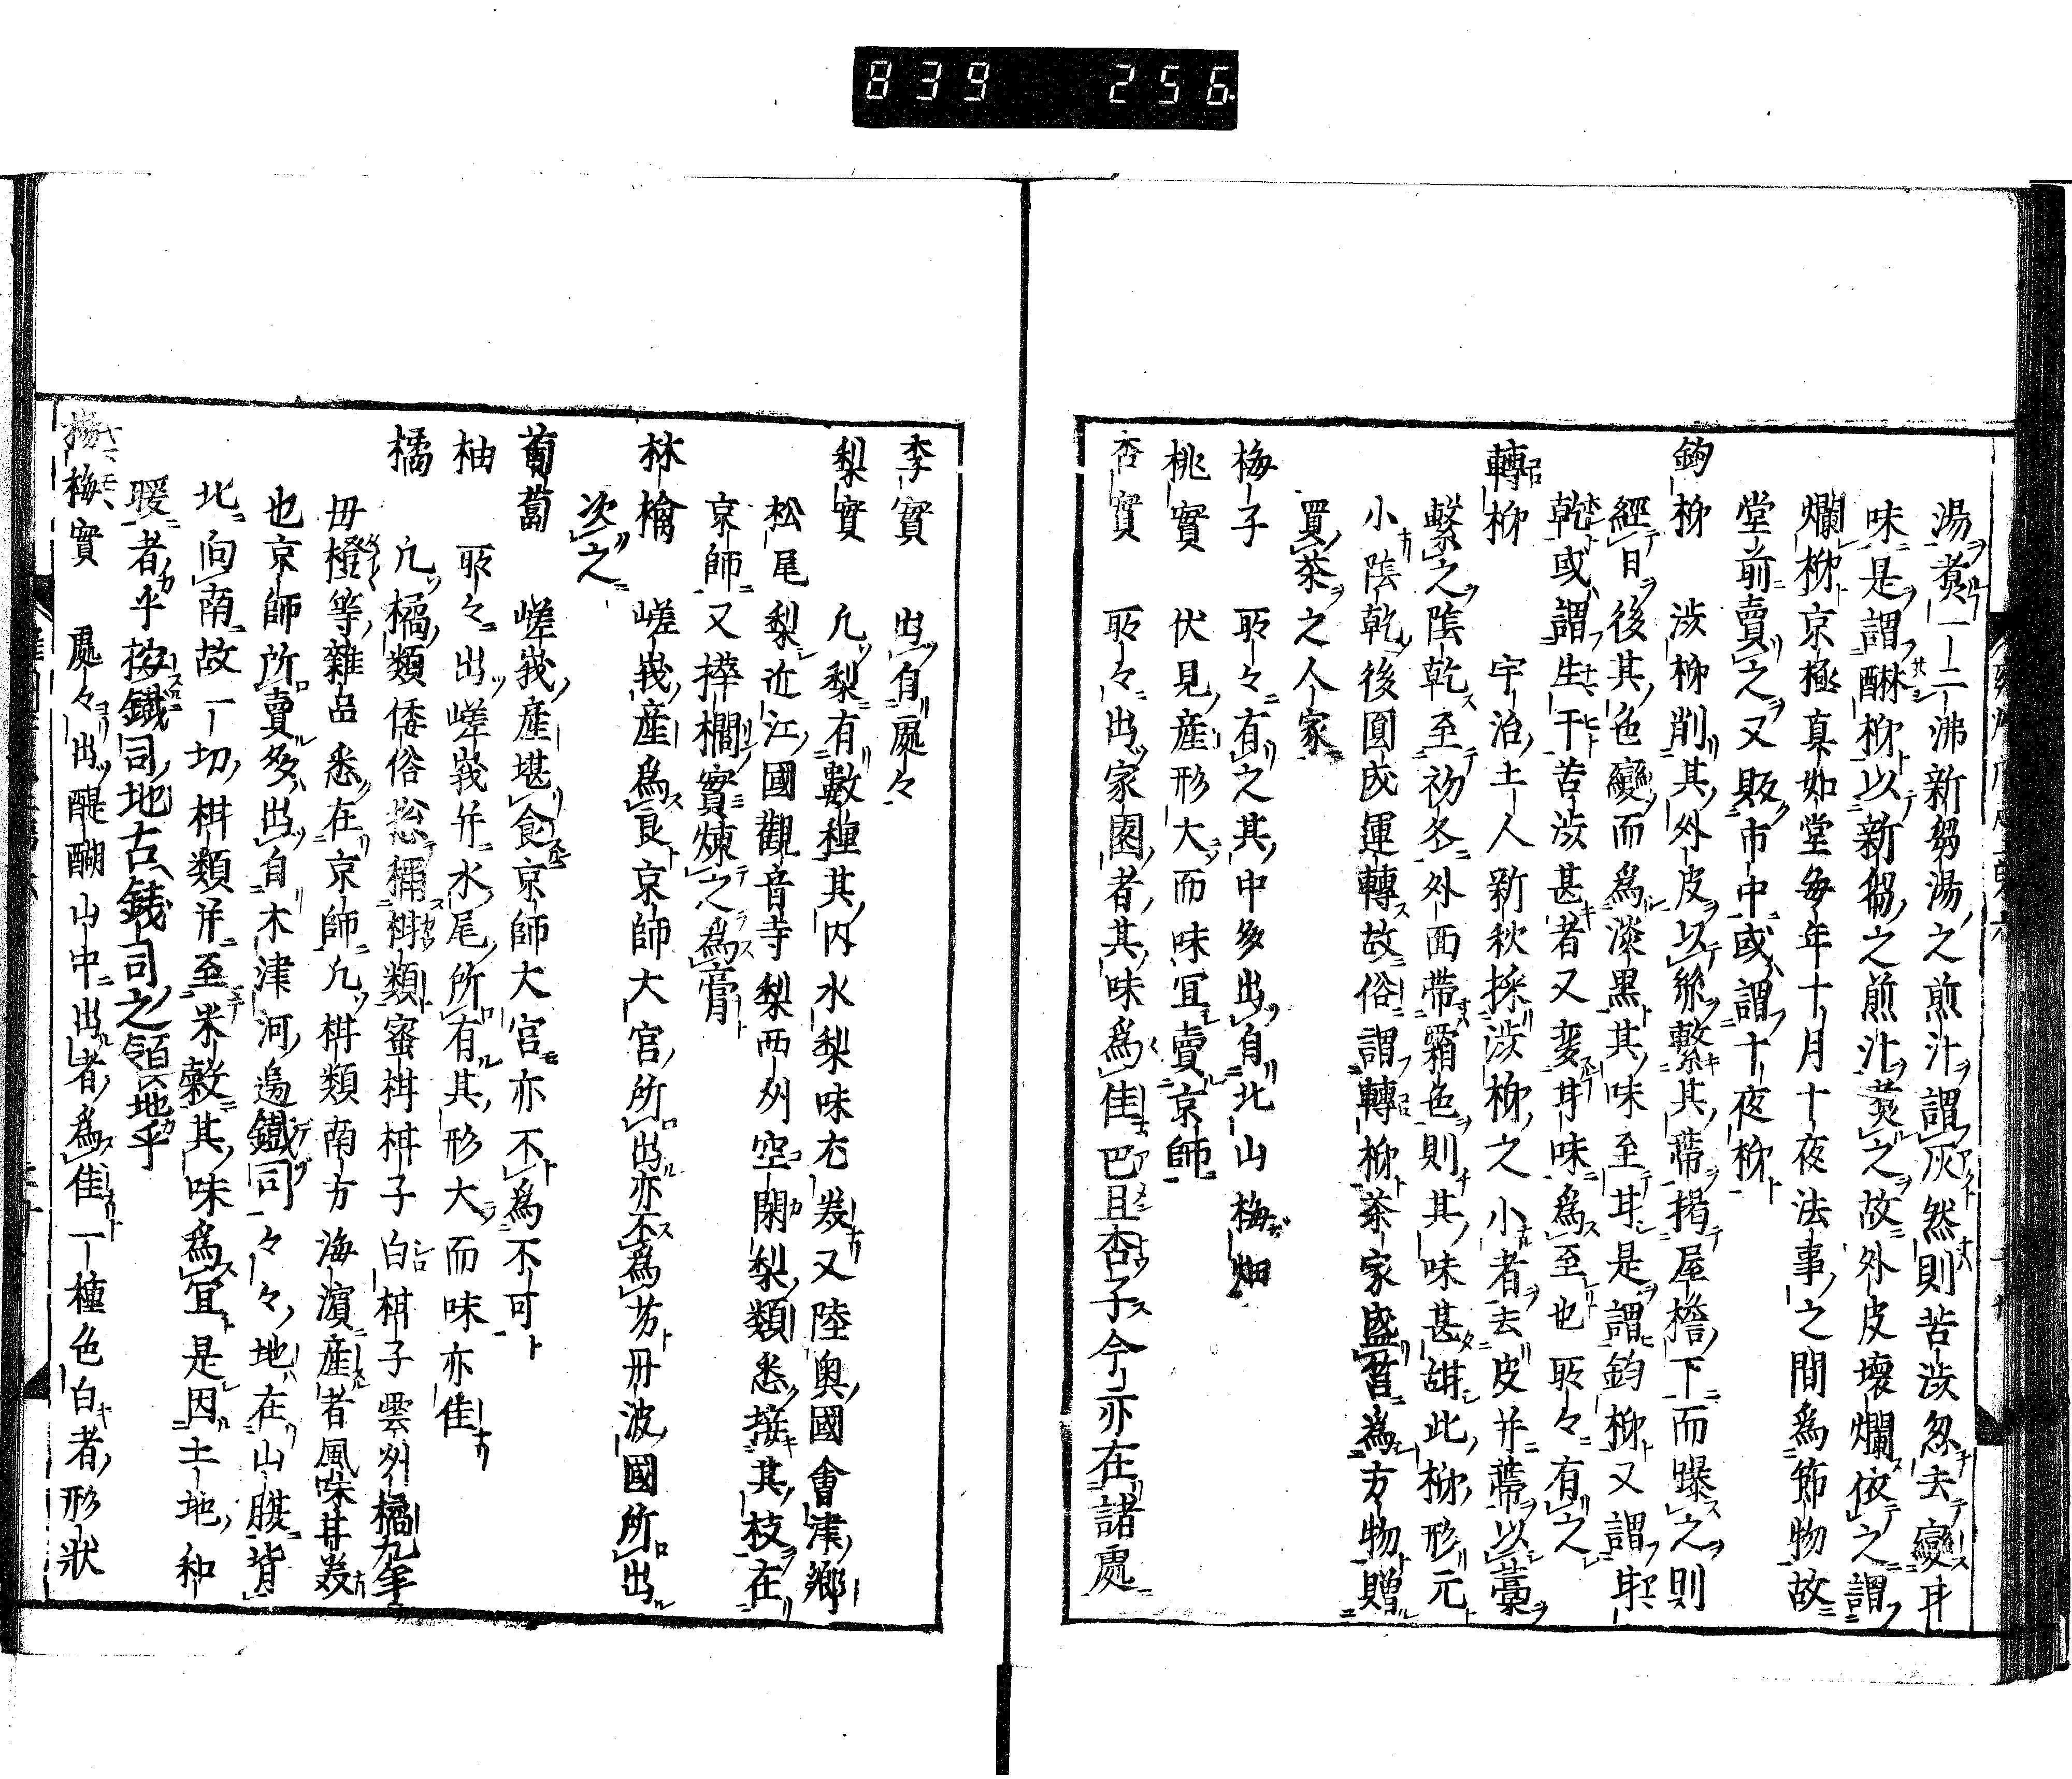 839 256
湯煑一二沸新蒭湯之煎汁謂灰然則苦渋忽去變甘
味是謂醂柹以新蒭之煎汁煑之故外皮壞爛依之謂
爛柹京極真如堂毎年十月十夜法事之間為節物故
堂前賣之又販市中或謂十夜柹
鈎柹 渋柹削其外皮以絲繫其蔕掲屋檐下而曝之則
經日後其色變而為淡黒其味至甘是謂鈎柹又謂
乾或謂生干苦渋甚者又変甘味為至也所々有之
轉柹 宇治土人新秋採渋柹之小者去皮并蔕以藁
繫之陰乾至初冬外面帯霜色則其味甚甜此柹形元
小陰乾後圓成運轉故俗謂轉柹茶家盛為方物贈
買茶之人家
梅子 所々有之其中多出自北山梅畑
桃實 伏見産形大而味冝賣京師
杏實 所々出家園者其味為佳巴旦杏子今亦在諸處
李實 出有處々
梨實 凢梨有數種其内水梨味尤美又陸奥國會津郷
松尾梨近江國觀音寺梨西刕空閑梨類悉接其枝在
京師又搾櫚實煉之為膏
林檎 嵯峩産為良京師大宮所出亦不為劣丹波國所出
次之
葡萄 嵯峩産堪食京師大宮亦不為不可
柚 所々出嵯峩并水尾所有其形大而味亦佳
橘 凢橘類倭俗惣稱柑類蜜柑柑子白柑子雲刕橘九年
毋橙等雜品悉在京師凢柑類南方海濵産者風味甘美
也京師所賣多出自木津河邉鐵司々々地在山腹背
北向南故一切柑類并至米穀其味為冝是因土地和
暖者乎按鐵司地古銭司之領地乎
楊梅實 處々出醍醐山中出者為佳一種色白者形狀